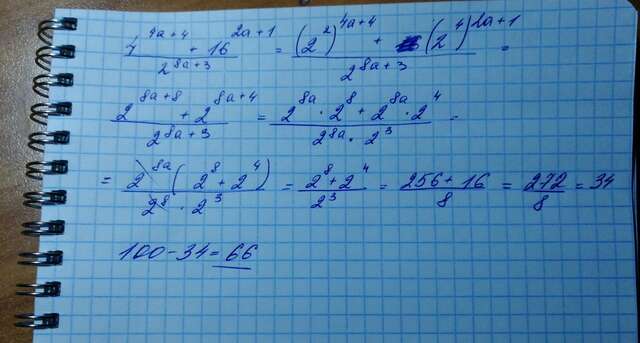 (4^(4a+4) + 16^(2a+1)) / 2^(8a+3) = ((2^2)^(4a+4) + (2^4)^(2a+1)) / 2^(8a+3) =
(2^(8a+8) + 2^(8a+4)) / 2^(8a+3) = (2^(8a) · 2^8 + 2^(8a) · 2^4) / (2^(8a) · 2^3) =
= (2^(8a) (2^8 + 2^4)) / (2^8 · 2^3) = (2^8 + 2^4) / 2^3 = (256 + 16) / 8 = 272 / 8 = 34
100 - 34 = 66